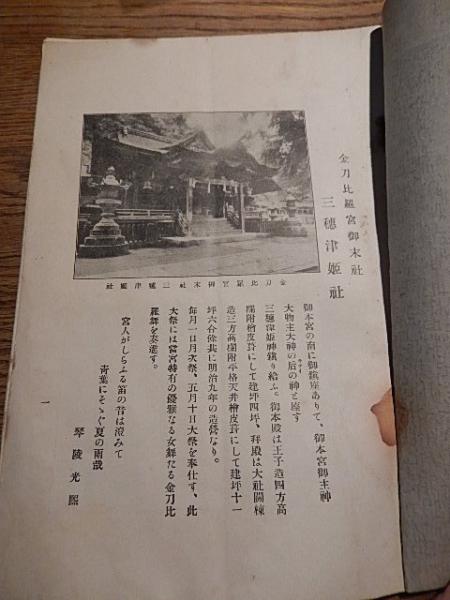 金刀比羅宮御末社
三穗津姬社
金刀比羅宮御末社三穗津姬社
御本宮の南に御鎭座ありて、御本宮御主神
大物主大神の后の神と座す
三穗津姬神鎭り給ふ。御本殿は王子造四方高
欄附檜皮葺にして建坪四坪、拜殿は大社關棟
造三方高欄附平格天井檜皮葺にして建坪十一
坪六合餘共に明治九年の造營なり。
每月一日月次祭、五月十日大祭を奉仕す、此
大祭には當宮特有の優雅なる女舞たる金刀比
羅舞を奏進す。
宮人がしらふる笛の音は澄みて
靑葉にそゝぐ夏の雨哉
琴陵光熈
一